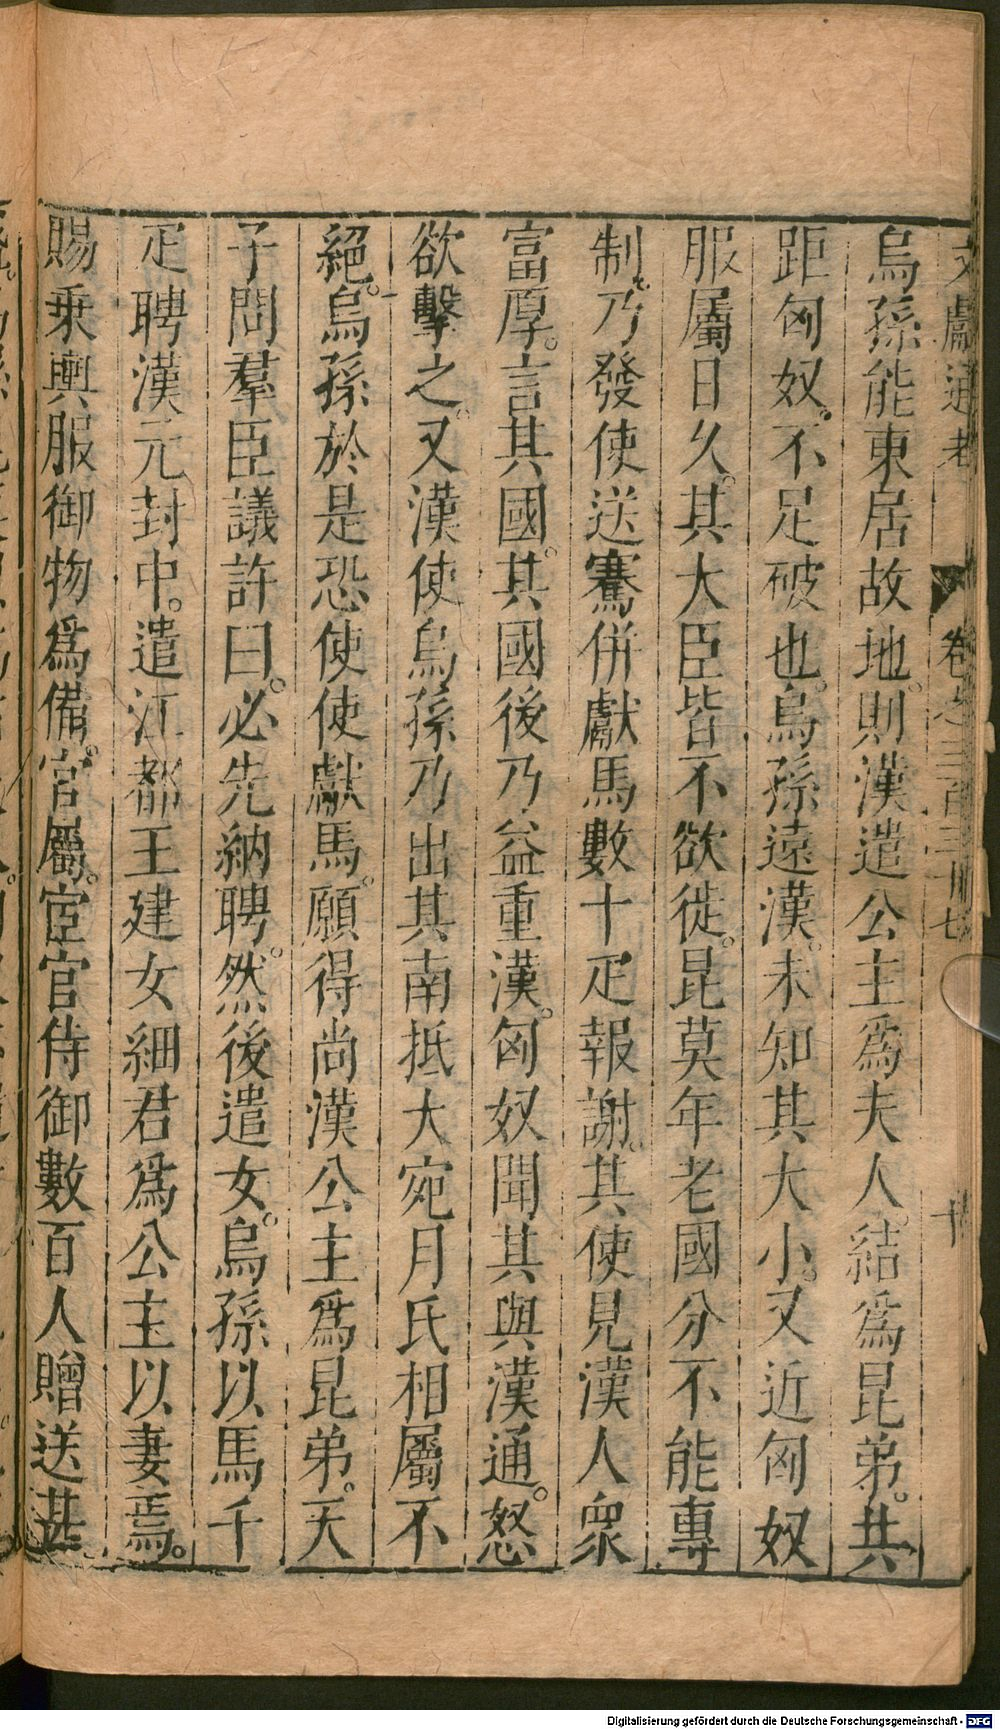 文獻通考 卷之三百三十七 十
烏孫能東居故地。則漢遣公主爲夫人。結爲昆弟。共
距匈奴。不足破也。烏孫遠漢。未知其大小。又近匈奴
服屬日久。其大臣皆不欲徙。昆莫年老國分不能專
制。乃發使送騫併獻馬數十疋報謝。其使見漢人衆
富厚。言其國。其國後乃益重漢。匈奴聞其與漢通。怒
欲擊之。又漢使烏孫乃出其南抵大宛月氏相屬不
絕。烏孫於是恐使使獻馬。願得尚漢公主爲昆弟。天
子問羣臣議許曰。必先納聘。然後遣女。烏孫以馬千
疋聘漢元封中。遣江都王建女細君爲公主以妻焉。
賜乗輿服御物爲備。官屬。宦官侍御數百人贈送甚
Digitalisierung gefördert durch die Deutsche Forschungsgemeinschaft - DFG